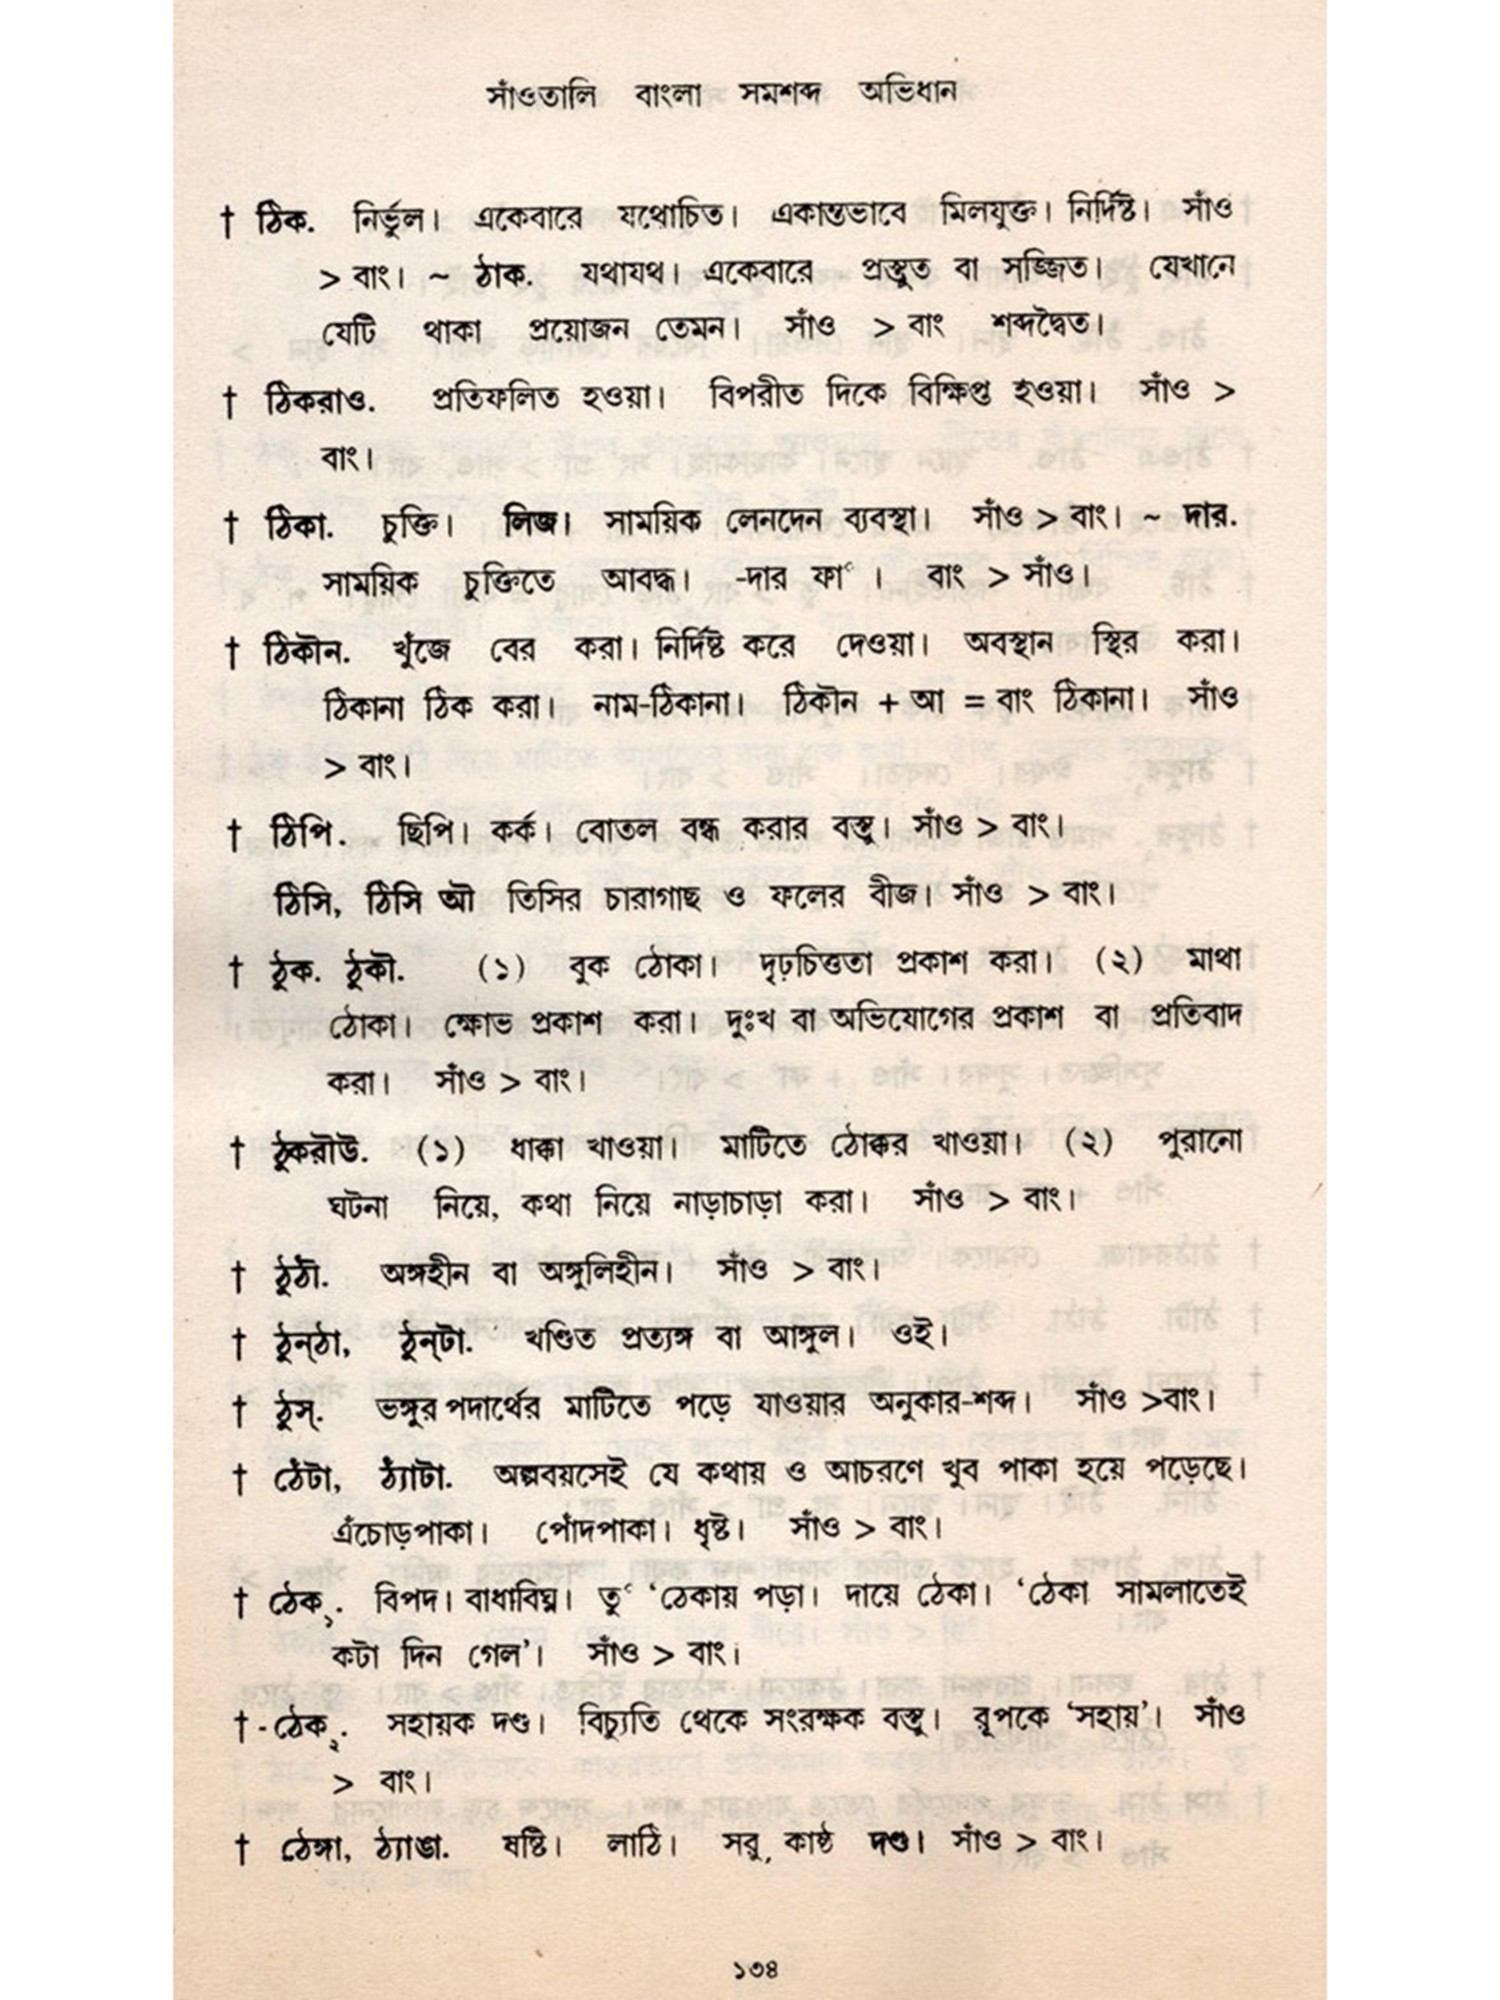 সাঁওতালি বাংলা সমশব্দ অভিধান
† ঠিক. নির্ভুল। একেবারে যথোচিত। একান্তভাবে মিলযুক্ত। নির্দিষ্ট। সাঁও
> বাং। ~ ঠাক. যথাযথ। একেবারে প্রস্তুত বা সজ্জিত। যেখানে
যেটি থাকা প্রয়োজন তেমন। সাঁও > বাং শব্দদ্বৈত।
† ঠিকরাও. প্রতিফলিত হওয়া। বিপরীত দিকে বিক্ষিপ্ত হওয়া। সাঁও >
বাং।
† ঠিকা. চুক্তি। লিজ। সাময়িক লেনদেন ব্যবস্থা। সাঁও > বাং। ~ দার.
সাময়িক চুক্তিতে আবদ্ধ। -দার ফা৺। বাং > সাঁও।
† ঠিকৗন. খুঁজে বের করা। নির্দিষ্ট করে দেওয়া। অবস্থান স্থির করা।
ঠিকানা ঠিক করা। নাম-ঠিকানা। ঠিকৗন + আ = বাং ঠিকানা। সাঁও
> বাং।
† ঠিপি. ছিপি। কর্ক। বোতল বন্ধ করার বস্তু। সাঁও > বাং।
ঠিসি, ঠিসি অৗ তিসির চারাগাছ ও ফলের বীজ। সাঁও > বাং।
† ঠুক. ঠুকৗ. (১) বুক ঠোকা। দৃঢ়চিত্ততা প্রকাশ করা। (২) মাথা
ঠোকা। ক্ষোভ প্রকাশ করা। দুঃখ বা অভিযোগের প্রকাশ বা প্রতিবাদ
করা। সাঁও > বাং।
† ঠুকরৗউ. (১) ধাক্কা খাওয়া। মাটিতে ঠোক্কর খাওয়া। (২) পুরানো
ঘটনা নিয়ে, কথা নিয়ে নাড়াচাড়া করা। সাঁও > বাং।
† ঠুঠৗ. অঙ্গহীন বা অঙ্গুলিহীন। সাঁও > বাং।
† ঠুন্‌ঠা, ঠুন্‌টা. খণ্ডিত প্রত্যঙ্গ বা আঙ্গুল। ওই।
† ঠুস্. ভঙ্গুর পদার্থের মাটিতে পড়ে যাওয়ার অনুকার-শব্দ। সাঁও >বাং।
† ঠেঁটা, ঠ্যাঁটা. অল্পবয়সেই যে কথায় ও আচরণে খুব পাকা হয়ে পড়েছে।
এঁচোড়পাকা। পোঁদপাকা। ধৃষ্ট। সাঁও > বাং।
† ঠেক₁. বিপদ। বাধাবিঘ্ন। তু৺ ‘ঠেকায় পড়া। দায়ে ঠেকা। ‘ঠেকা সামলাতেই
কটা দিন গেল’। সাঁও > বাং।
† - ঠেক₂. সহায়ক দণ্ড। বিচ্যুতি থেকে সংরক্ষক বস্তু। রূপকে ‘সহায়’। সাঁও
> বাং।
† ঠেঙ্গা, ঠ্যাঙা. ষষ্টি। লাঠি। সরু কাষ্ঠ দণ্ড। সাঁও > বাং।
১৩৪